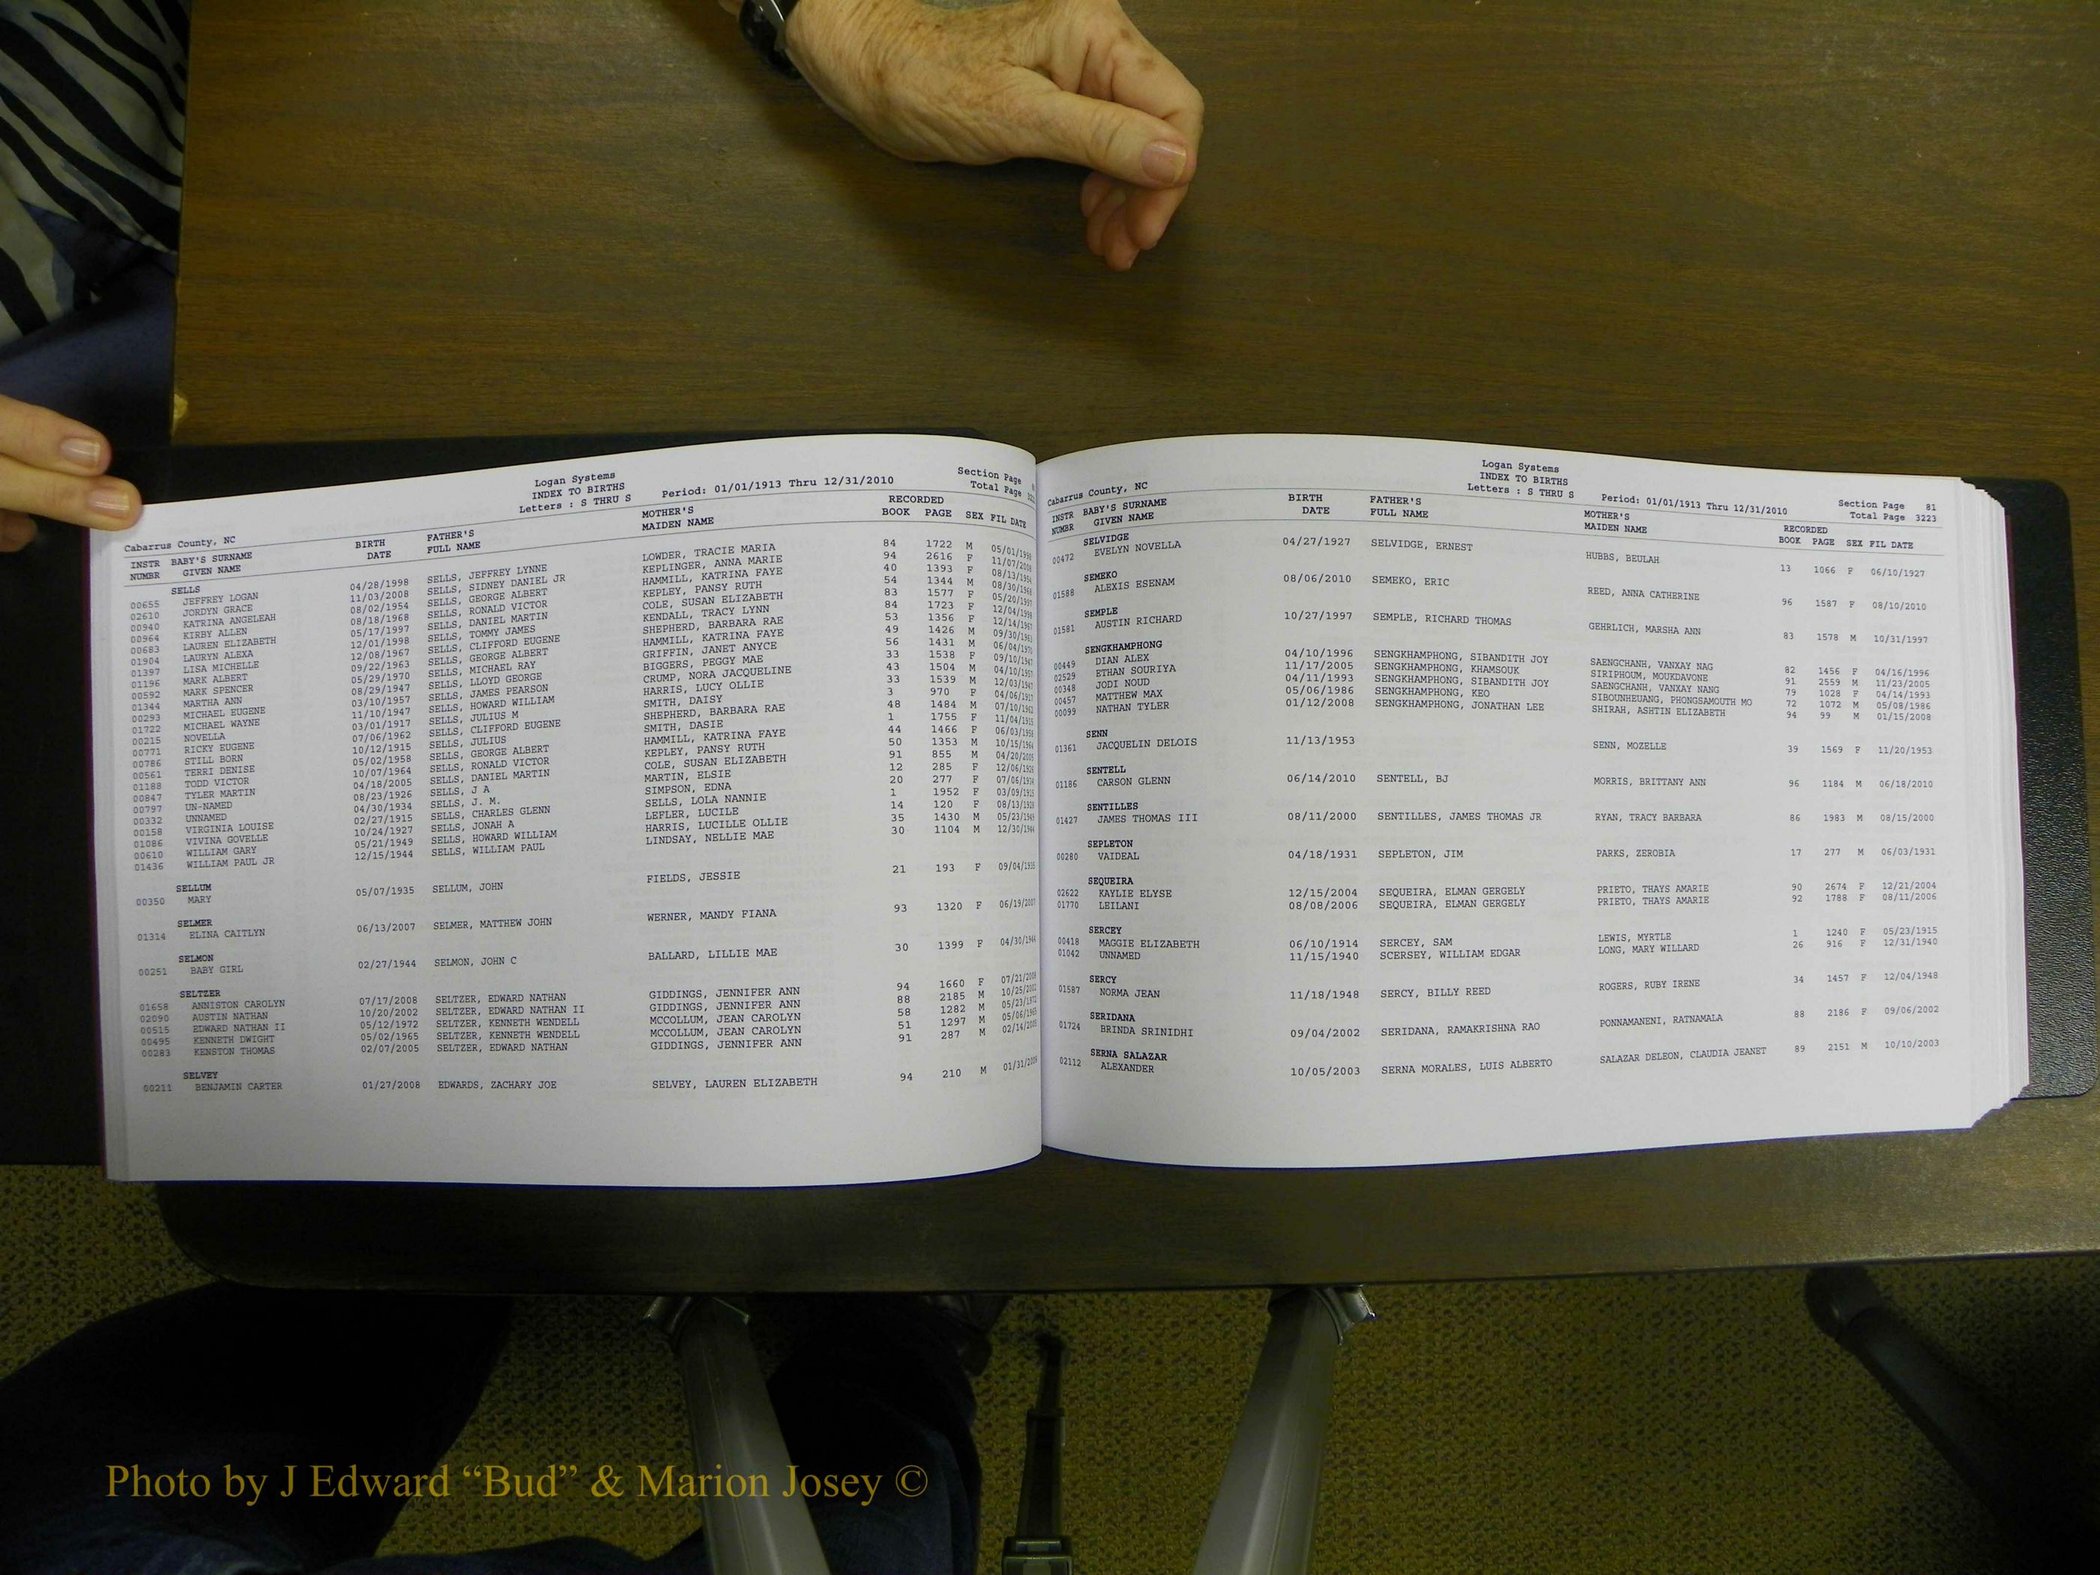 Cabarrus County, NC
Logan Systems
INDEX TO BIRTHS
Letters : S THRU S
Period: 01/01/1913 Thru 12/31/2010
Section Page
Total Page
INSTR BABY'S SURNAME BIRTH FATHER'S MOTHER'S RECORDED
NUMBR GIVEN NAME DATE FULL NAME MAIDEN NAME BOOK PAGE SEX FIL DATE
SELLS
00655 JEFFREY LOGAN 04/28/1998 SELLS, JEFFREY LYNNE LOWDER, TRACIE MARIA 84 1722 M 05/01/1998
02610 JORDYN GRACE 11/03/2008 SELLS, SIDNEY DANIEL JR KEPLINGER, ANNA MARIE 94 2616 F 11/07/2008
00940 KATRINA ANGELEAH 08/02/1954 SELLS, GEORGE ALBERT HAMMILL, KATRINA FAYE 40 1393 F 08/13/1954
00964 KIRBY ALLEN 08/18/1968 SELLS, RONALD VICTOR KEPLEY, PANSY RUTH 54 1344 M 08/30/1968
00683 LAUREN ELIZABETH 05/17/1997 SELLS, DANIEL MARTIN COLE, SUSAN ELIZABETH 83 1577 F 05/20/1997
01904 LAURYN ALEXA 12/01/1998 SELLS, TOMMY JAMES KENDALL, TRACY LYNN 84 1723 F 12/04/1998
01397 LISA MICHELLE 12/08/1967 SELLS, CLIFFORD EUGENE SHEPHERD, BARBARA RAE 53 1356 F 12/14/1967
01196 MARK ALBERT 09/22/1963 SELLS, GEORGE ALBERT HAMMILL, KATRINA FAYE 49 1426 M 09/30/1963
00592 MARK SPENCER 05/29/1970 SELLS, MICHAEL RAY GRIFFIN, JANET ANYCE 56 1431 M 06/04/1970
01344 MARTHA ANN 08/29/1947 SELLS, LLOYD GEORGE BIGGERS, PEGGY MAE 33 1538 F 09/10/1947
00293 MICHAEL EUGENE 03/10/1957 SELLS, JAMES PEARSON CRUMP, NORA JACQUELINE 43 1504 M 04/10/1957
01722 MICHAEL WAYNE 11/10/1947 SELLS, HOWARD WILLIAM HARRIS, LUCY OLLIE 33 1539 M 12/03/1947
00215 NOVELLA 03/01/1917 SELLS, JULIUS M SMITH, DAISY 3 970 F 04/06/1917
00771 RICKY EUGENE 07/06/1962 SELLS, CLIFFORD EUGENE SHEPHERD, BARBARA RAE 48 1484 M 07/10/1962
00786 STILL BORN 10/12/1915 SELLS, JULIUS SMITH, DASIE 1 1755 F 11/04/1915
00561 TERRI DENISE 05/02/1958 SELLS, GEORGE ALBERT HAMMILL, KATRINA FAYE 44 1466 F 06/03/1958
01188 TODD VICTOR 10/07/1964 SELLS, RONALD VICTOR KEPLEY, PANSY RUTH 50 1353 M 10/15/1964
00847 TYLER MARTIN 04/18/2005 SELLS, DANIEL MARTIN COLE, SUSAN ELIZABETH 91 855 M 04/20/2005
00797 UN-NAMED 08/23/1926 SELLS, J A MARTIN, ELSIE 12 285 F 12/06/1926
00332 UNNAMED 04/30/1934 SELLS, J. M. SIMPSON, EDNA 20 277 F 07/06/1934
00158 VIRGINIA LOUISE 02/27/1915 SELLS, CHARLES GLENN SELLS, LOLA NANNIE 1 1952 F 03/09/1915
01086 VIVINA GOVELLE 10/24/1927 SELLS, JONAH A LEFLER, LUCILE 14 120 F 08/13/1928
00610 WILLIAM GARY 05/21/1949 SELLS, HOWARD WILLIAM HARRIS, LUCILLE OLLIE 35 1430 M 05/23/1949
01436 WILLIAM PAUL JR 12/15/1944 SELLS, WILLIAM PAUL LINDSAY, NELLIE MAE 30 1104 M 12/30/1944
SELLUM
00350 MARY 05/07/1935 SELLUM, JOHN FIELDS, JESSIE 21 193 F 09/04/1935
SELMER
01314 ELINA CAITLYN 06/13/2007 SELMER, MATTHEW JOHN WERNER, MANDY FIANA 93 1320 F 06/19/2007
SELMON
00251 BABY GIRL 02/27/1944 SELMON, JOHN C BALLARD, LILLIE MAE 30 1399 F 04/30/1944
SELTZER
01658 ANNISTON CAROLYN 07/17/2008 SELTZER, EDWARD NATHAN GIDDINGS, JENNIFER ANN 94 1660 F 07/21/2008
02090 AUSTIN NATHAN 10/20/2002 SELTZER, EDWARD NATHAN II GIDDINGS, JENNIFER ANN 88 2185 M 10/25/2002
00515 EDWARD NATHAN II 05/12/1972 SELTZER, KENNETH WENDELL MCCOLLUM, JEAN CAROLYN 58 1282 M 05/23/1972
00495 KENNETH DWIGHT 05/02/1965 SELTZER, KENNETH WENDELL MCCOLLUM, JEAN CAROLYN 51 1297 M 05/06/1965
00283 KENSTON THOMAS 02/07/2005 SELTZER, EDWARD NATHAN GIDDINGS, JENNIFER ANN 91 287 M 02/14/2005
SELVEY
00211 BENJAMIN CARTER 01/27/2008 EDWARDS, ZACHARY JOE SELVEY, LAUREN ELIZABETH 94 210 M 01/31/2008
Cabarrus County, NC
Logan Systems
INDEX TO BIRTHS
Letters : S THRU S
Period: 01/01/1913 Thru 12/31/2010
Section Page 81
Total Page 3223
INSTR BABY'S SURNAME BIRTH FATHER'S MOTHER'S RECORDED
NUMBR GIVEN NAME DATE FULL NAME MAIDEN NAME BOOK PAGE SEX FIL DATE
SELVIDGE
00472 EVELYN NOVELLA 04/27/1927 SELVIDGE, ERNEST HUBBS, BEULAH 13 1066 F 06/10/1927
SEMEKO
01588 ALEXIS ESENAM 08/06/2010 SEMEKO, ERIC REED, ANNA CATHERINE 96 1587 F 08/10/2010
SEMPLE
01581 AUSTIN RICHARD 10/27/1997 SEMPLE, RICHARD THOMAS GEHRLICH, MARSHA ANN 83 1578 M 10/31/1997
SENGKHAMPHONG
00449 DIAN ALEX 04/10/1996 SENGKHAMPHONG, SIBANDITH JOY SAENGCHANH, VANXAY NAG 82 1456 F 04/16/1996
02529 ETHAN SOURIYA 11/17/2005 SENGKHAMPHONG, KHAMSOUK SIRIPHOUM, MOUKDAVONE 91 2559 M 11/23/2005
00348 JODI NOUD 04/11/1993 SENGKHAMPHONG, SIBANDITH JOY SAENGCHANH, VANXAY NANG 79 1028 F 04/14/1993
00457 MATTHEW MAX 05/06/1986 SENGKHAMPHONG, KEO SIBOUNHEUANG, PHONGSAMOUTH MO 72 1072 M 05/08/1986
00099 NATHAN TYLER 01/12/2008 SENGKHAMPHONG, JONATHAN LEE SHIRAH, ASHTIN ELIZABETH 94 99 M 01/15/2008
SENN
01361 JACQUELIN DELOIS 11/13/1953 SENN, MOZELLE 39 1569 F 11/20/1953
SENTELL
01186 CARSON GLENN 06/14/2010 SENTELL, BJ MORRIS, BRITTANY ANN 96 1184 M 06/18/2010
SENTILLES
01427 JAMES THOMAS III 08/11/2000 SENTILLES, JAMES THOMAS JR RYAN, TRACY BARBARA 86 1983 M 08/15/2000
SEPLETON
00280 VAIDEAL 04/18/1931 SEPLETON, JIM PARKS, ZEROBIA 17 277 M 06/03/1931
SEQUEIRA
02622 KAYLIE ELYSE 12/15/2004 SEQUEIRA, ELMAN GERGELY PRIETO, THAYS AMARIE 90 2674 F 12/21/2004
01770 LEILANI 08/08/2006 SEQUEIRA, ELMAN GERGELY PRIETO, THAYS AMARIE 92 1788 F 08/11/2006
SERCEY
00418 MAGGIE ELIZABETH 06/10/1914 SERCEY, SAM LEWIS, MYRTLE 1 1240 F 05/23/1915
01042 UNNAMED 11/15/1940 SCERSEY, WILLIAM EDGAR LONG, MARY WILLARD 26 916 F 12/31/1940
SERCY
01587 NORMA JEAN 11/18/1948 SERCY, BILLY REED ROGERS, RUBY IRENE 34 1457 F 12/04/1948
SERIDANA
01724 BRINDA SRINIDHI 09/04/2002 SERIDANA, RAMAKRISHNA RAO PONNAMANENI, RATNAMALA 88 2186 F 09/06/2002
SERNA SALAZAR
02112 ALEXANDER 10/05/2003 SERNA MORALES, LUIS ALBERTO SALAZAR DELEON, CLAUDIA JEANET 89 2151 M 10/10/2003
Photo by J Edward “Bud” & Marion Josey ©